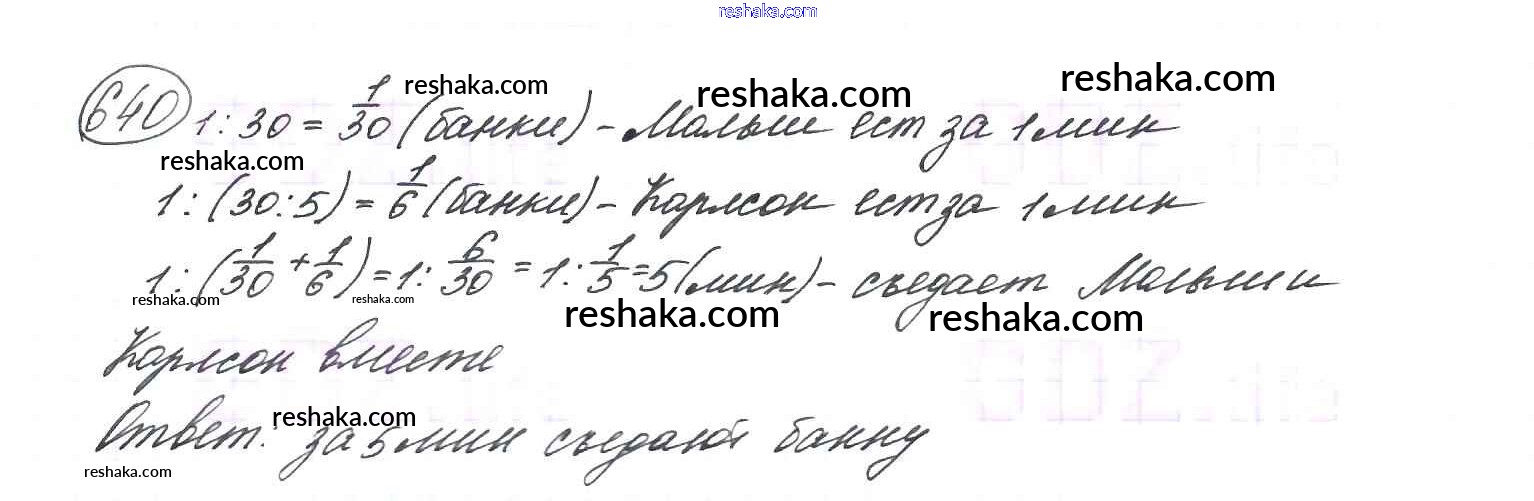 reshaka.com
640 1 : 30 = 1/30 (банки) – Малыш ест за 1 мин
reshaka.com reshaka.com reshaka.com
reshaka.com
1 : (30 : 5) = 1/6 (банки) – Карлсон ест за 1 мин
1 : (1/30 + 1/6) = 1 : 6/30 = 1 : 1/5 = 5 (мин) – съедает Малыш и
reshaka.com reshaka.com reshaka.com reshaka.com
Карлсон вместе
reshaka.com
Ответ: за 5 мин съедают банку
reshaka.com